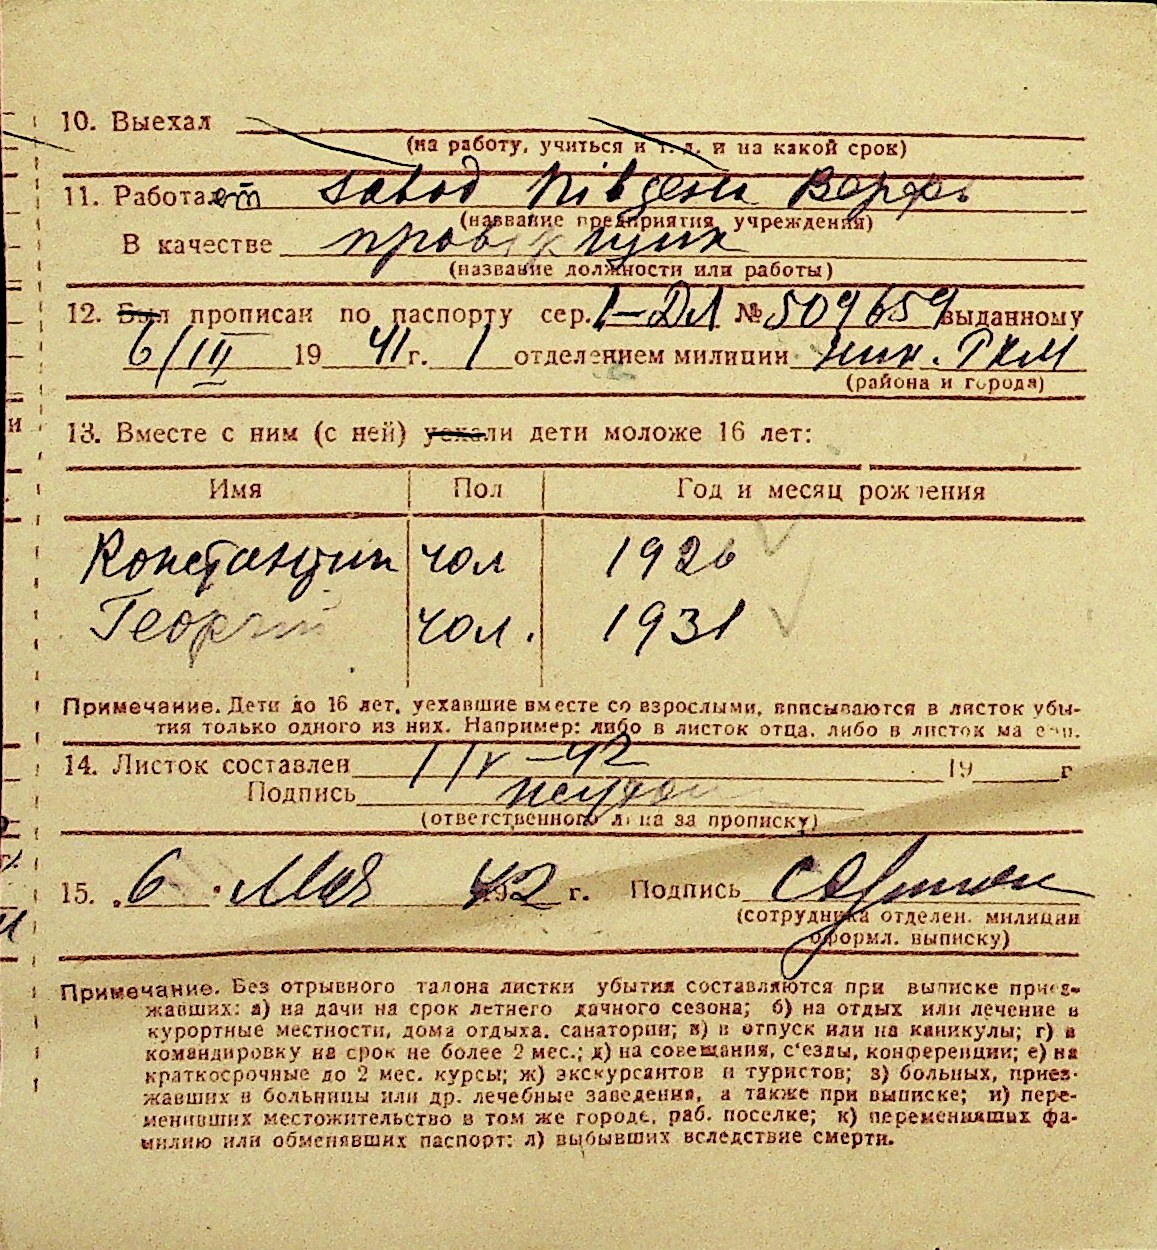 10. Выехал
(на работу, учиться и т. д. и на какой срок)
11. Работает завод Південа Верфь
(название предприятия, учреждения)
В качестве
(название должности или работы)
12. Был прописан по паспорту сер. I-ДЛ № 509659 выданному
6/III 1941 г. 1 отделением милиции Ник. РКМ
(района и города)
13. Вместе с ним (с ней) уехали дети моложе 16 лет:
Имя Пол Год и месяц рождения
Константин чол 1926
Георгій чол. 1931
Примечание. Дети до 16 лет, уехавшие вместе со взрослыми, вписываются в листок убы-
тия только одного из них. Например: либо в листок отца, либо в листок матери.
14. Листок составлен 1/IV-42 19 г
Подпись
(ответственного лица за прописку)
15. 6 Мая 42 г. Подпись
(сотрудника отделен. милиции
оформл. выписку)
Примечание. Без отрывного талона листки убытия составляются при выписке приез-
жавших: а) на дачи на срок летнего дачного сезона; б) на отдых или лечение в
курортные местности, дома отдыха, санатории; в) в отпуск или на каникулы; г) в
командировку на срок не более 2 мес.; д) на совещания, с‘езды, конференции; е) на
краткосрочные до 2 мес. курсы; ж) экскурсантов и туристов; з) больных, приез-
жавших в больницы или др. лечебные заведения, а также при выписке; и) пере-
менивших местожительство в том же городе, раб. поселке; к) переменивших фа-
милию или обменявших паспорт; л) выбывших вследствие смерти.